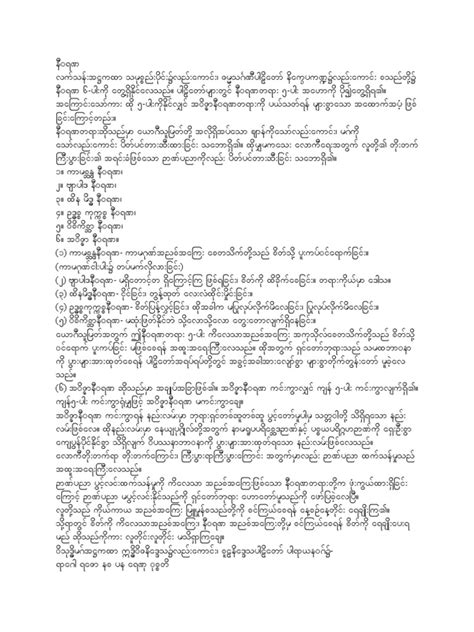 နီဝရဏ
လက်သန်းအဋ္ဌကထာ သမုစ္စည်းပိုင်း၌လည်းကောင်း၊ ဓမ္မသင်္ဂဏီပါဠိတော် နိက္ခေပကဏ္ဍ၌လည်းကောင်း စသည်တို့၌
နီဝရဏ ၆-ပါးကို တွေ့ရှိနိုင်လေသည်။ ပါဠိတော်များတွင် နီဝရဏတရား ၅-ပါး အဟောကို ပို၍တွေ့ရှိရ၏။
အကြောင်းသော်ကား ထို ၅-ပါးကိုခွာနိုင်လျှင် အဝိဇ္ဇာနီဝရဏတရားကို ပယ်သတ်ရန် များစွာသော အထောက်အပံ့ ဖြစ်
ခြင်းကြောင့်တည်း။
နီဝရဏတရားဆိုသည်မှာ ယောဂီသူမြတ်တို့ အလိုရှိအပ်သော ဈာန်ကိုသော်လည်းကောင်း၊ မဂ်ကို
သော်လည်းကောင်း ပိတ်ပင်တားဆီးထားခြင်း သဘောရှိ၏။ ထိုမျှမကသေး လောကီရေးအတွက် လူတို့၏ တိုးတက်
ကြီးပွားခြင်း၏ အရင်းခံဖြစ်သော ဉာဏ်ပညာကိုလည်း ပိတ်ပင်တားဆီးခြင်း သဘောရှိ၏။
၁။ ကာမစ္ဆန္ဒ နီဝရဏ၊
၂။ ဗျာပါဒ နီဝရဏ၊
၃။ ထိန မိဒ္ဓ နီဝရဏ၊
၄။ ဥဒ္ဓစ္စ ကုက္ကုစ္စ နီဝရဏ၊
၅။ ဝိစိကိစ္ဆာ နီဝရဏ၊
၆။ အဝိဇ္ဇာ နီဝရဏ။
(၁) ကာမစ္ဆန္ဒနီဝရဏ- ကာမဂုဏ်အညစ်အကြေး စေတသိက်တို့သည် စိတ်သို့ ပူးကပ်ဝင်ရောက်ခြင်း။
(ကာမဂုဏ်ငါးပါး၌ တပ်မက်လိုလားခြင်း)
(၂) ဗျာပါဒနီဝရဏ- မရှိတောင့်တ ရှိကြောင့်ကြ ဖြစ်ရခြင်း၊ စိတ်ကို ထိခိုက်စေခြင်း။ တရားကိုယ်မှာ ဒေါသ။
(၃) ထိနမိဒ္ဓနီဝရဏ- ငိုင်ခြင်း၊ တွန့်ဆုတ် လေးလံထိုင်းမှိုင်းခြင်း။
(၄) ဥဒ္ဓစ္စကုက္ကုစ္စနီဝရဏ- စိတ်ပြန့်လွင့်ခြင်း၊ ထိုအခါက မပြုလုပ်လိုက်မိလေခြင်း၊ ပြုလုပ်လိုက်မိလေခြင်း။
(၅) ဝိစိကိစ္ဆာနီဝရဏ- မဆုံးဖြတ်နိုင်ဘဲ သို့လောသို့လော တွေးတောလျက်ရှိနေခြင်း။
ယောဂီသူမြတ်အတွက် ဤနီဝရဏတရား ၅-ပါး ကိလေသာအညစ်အကြေး အကုသိုလ်စေတသိက်တို့သည် စိတ်သို့
ဝင်ရောက် ပူးကပ်ခြင်း မဖြစ်စေရန် အထူးအရေးကြီးလေသည်။ ထိုအတွက် ရှင်တော်ဘုရားသည် သမထဘာဝနာ
ကို ပွားများအားထုတ်စေရန် ပါဠိတော်အရပ်ရပ်တို့တွင် အခွင့်အခါအားလျော်စွာ များစွာတိုက်တွန်းတော် မူခဲ့လေ
သည်။
(၆) အဝိဇ္ဇာနီဝရဏ ဆိုသည်မှာ အချုပ်အခြာဖြစ်၏။ အဝိဇ္ဇာနီဝရဏ ကင်းကွာလျှင် ကျန် ၅-ပါး ကင်းကွာလျက်ရှိ၏။
ကျန်၅-ပါး ကင်းကွာရုံမျှဖြင့် အဝိဇ္ဇာနီဝရဏ မကင်းကွာချေ။
အဝိဇ္ဇာနီဝရဏ ကင်းကွာရန် နည်းလမ်းမှာ ဘုရားရှင်တစ်ဆူတစ်ဆူ ပွင့်တော်မူပါမှ သတ္တဝါတို့ သိရှိရသော နည်း
လမ်းဖြစ်လေ၏။ ထိုနည်းလမ်းမှာ နေယျပုဂ္ဂိုလ်တို့အတွက် နာမရူပပရိစ္ဆေဒဉာဏ်နှင့် ပစ္စယပရိဂ္ဂဟဉာဏ်ကို ရှေးဦးစွာ
ကျေပွန်ပိုင်နိုင်စွာ သိရှိလျက် ဝိပဿနာဘာဝနာကို ပွားများအားထုတ်ရသော နည်းလမ်းဖြစ်လေသည်။
လောကီတိုးတက်ရာ တိုးတက်ကြောင်း၊ ကြီးပွားရာကြီးပွားကြောင်း အတွက်မှာလည်း ဉာဏ်ပညာ ထက်သန်မှုသည်
အထူးအရေးကြီးလေသည်။
ဉာဏ်ပညာ ပွင့်လင်းထက်သန်မှုကို ကိလေသာ အညစ်အကြေးဖြစ်သော နီဝရဏတရားတို့က ဖုံးကွယ်ထားရှိခြင်း
ကြောင့် ဉာဏ်ပညာ မပွင့်လင်းနိုင်သည်ကို ရှင်တော်ဘုရား ဟောတော်မူသည်ကို ဖော်ပြခဲ့လေပြီ။
လူတို့သည် ကိုယ်ကာယ အညစ်အကြေး ပြုမူနေသည်တို့ကို စင်ကြယ်စေရန် နေ့စဉ်နေ့တိုင်း ရေချိုးကြ၏။
သို့ရာတွင် စိတ်ကို ကိလေသာအညစ်အကြေး၊ နီဝရဏ အညစ်အကြေးတို့မှ စင်ကြယ်စေရန် စိတ်ကို ရေချိုးပေးရ
မည် ဆိုသည်ကိုကား လူတိုင်းလူတိုင်း မသိရှိကြချေ။
ဝိသုဒ္ဓိမဂ်အဋ္ဌကထာ ဣဒ္ဓိဝိဓနိဒ္ဒေသ၌လည်းကောင်း၊ စူဠနိဒ္ဒေသပါဠိတော် ပါရာယနဝဂ်၌-
ရာဂေါ ရဇော န စ ပန ရေဏု ဝုစ္စတိ